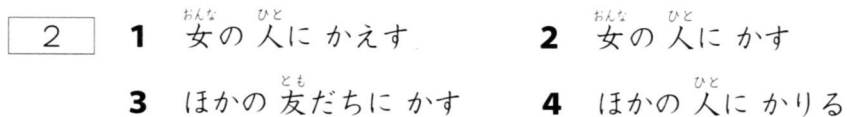 2 1 女の 人に かえす 2 女の 人に かす
3 ほかの 友だちに かす 4 ほかの 人に かりる